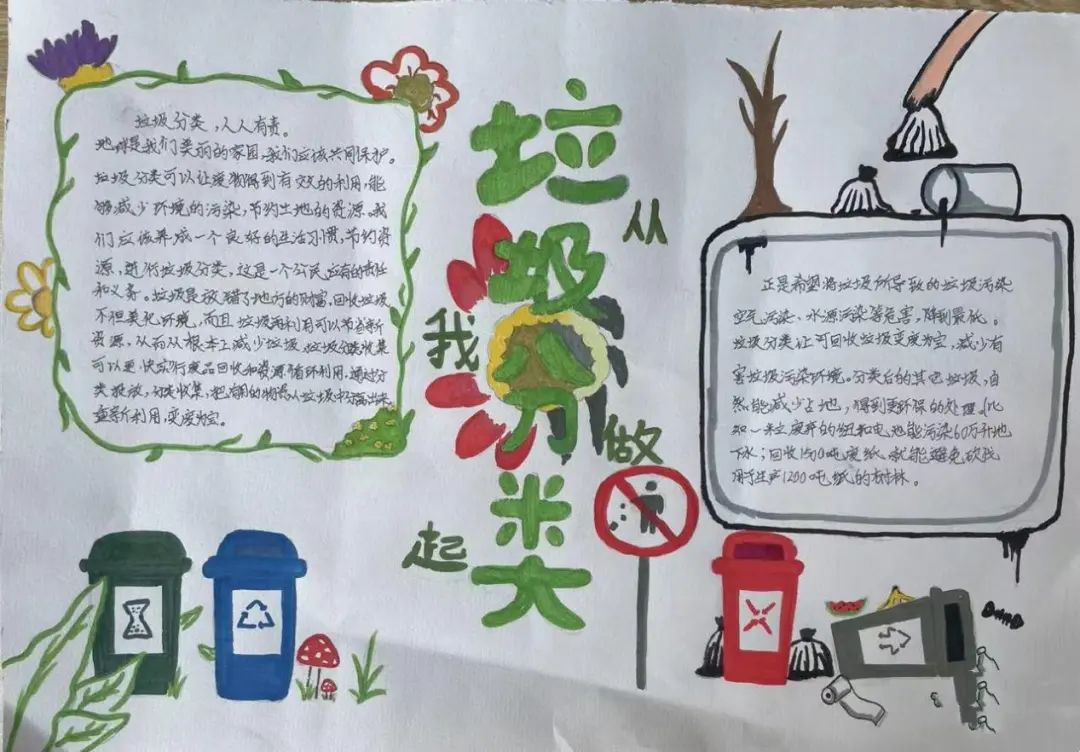 垃圾分类
从我做起
垃圾分类,人人有责。
地球是我们美丽的家园,我们应该共同保护。
垃圾分类可以让废物得到有效的利用,能
够减少环境的污染,节约土地的资源。我
们应该养成一个良好的生活习惯,节约资
源,进行垃圾分类,这是一个公民应有的责任
和义务。垃圾是放错了地方的财富,回收垃圾
不但美化环境,而且垃圾再利用可以节省新
资源,从而从根本上减少垃圾。垃圾分类收集
可以更快实行废品回收和资源循环利用,通过分
类投放,分类收集,把有用的物品从垃圾中
重新利用,变废为宝。
正是希望将垃圾所导致的垃圾污染
空气污染、水源污染等危害,降到最低。
垃圾分类让可回收垃圾变废为宝,减少有
害垃圾污染环境。分类后的其他垃圾,自
然能减少占地,得到更环保的处理。比
如一粒废弃的纽扣电池能污染60万升地
下水;回收1500吨废纸,就能避免砍伐
用于生产1200吨纸的树林。